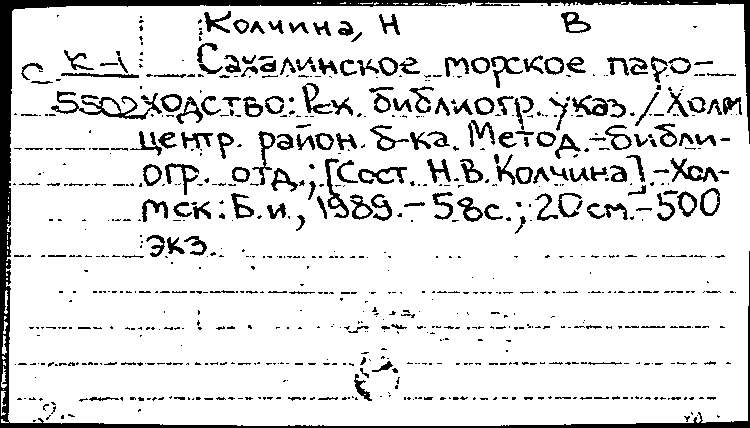 Колчина, Н В
с К-1 Сахалинское морское паро-
5502 ходство: Рек. библиогр. указ. / Холм
центр. район. б-ка. Метод.-библи-
огр. отд.; [Сост. Н.В. Колчина].-Хол-
мск: Б.и., 1989.-58с.; 20см.-500
экз.